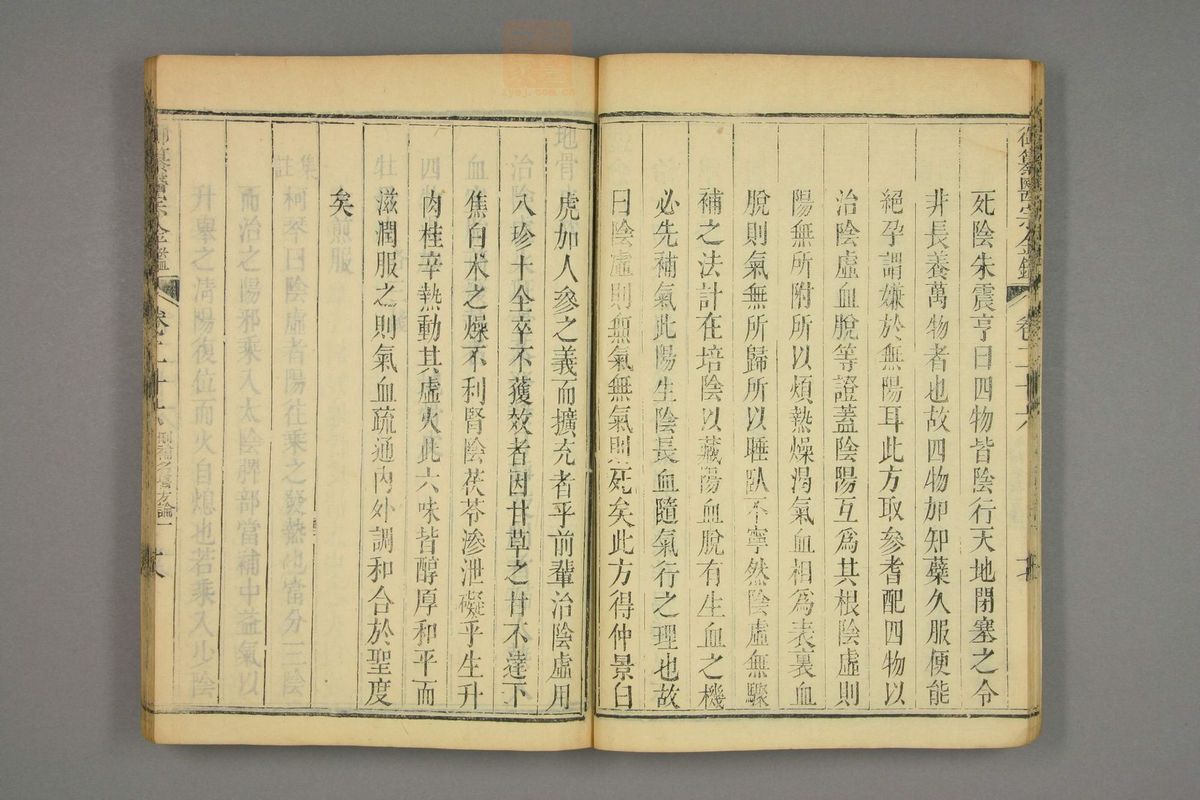 御纂醫宗金鑑 卷二十六
死陰朱震亨曰四物皆陰行天地閉塞之令
非長養萬物者也故四物加知蘗久服便能
絕孕謂嫌於無陽耳此方取參耆配四物以
治陰虛血脫等證蓋陰陽互為其根陰虛則
陽無所附所以煩熱燥渴氣血相為表裏血
脫則氣無所歸所以睡臥不寧然陰虛無驟
補之法計在培陰以藏陽血脫有生血之機
必先補氣此陽生陰長血隨氣行之理也故
曰陰虛則無氣無氣則死矣此方得仲景白
虎加人參之義而擴充者乎前輩治陰虛用
八珍十全卒不獲效者因甘草之甘不達下
焦白术之燥不利腎陰茯苓滲泄礙乎生升
肉桂辛熱動其虛火此六味皆醇厚和平而
滋潤服之則氣血疏通內外調和合於聖度
矣
集註 柯琴曰陰虛者陽往乘之發熱也當分三陰
而治之陽邪乘入太陰脾部當補中益氣以
升舉之清陽復位而火自熄也若乘入少陰
御纂醫宗金鑑 卷二十六 刪補名醫方論一